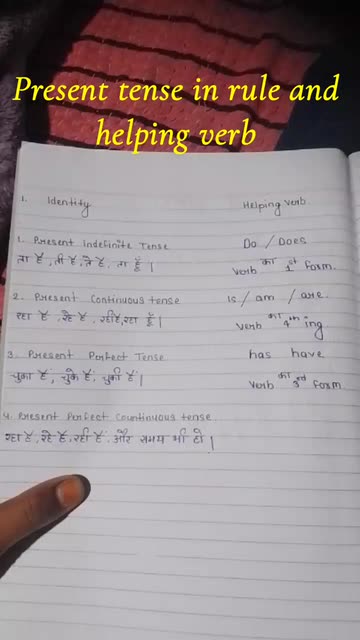 Present tense in rule and
helping verb
1. Identity Helping verb.
1. Present Indefinite Tense Do / Does
ता है, ती है, ते है, ता हूँ | verb का 1st form.
2. Present Continuous tense is / am / are.
रहा है, रहे है, रही है, रहा हूँ | verb का 4th ing
3. Present Perfect Tense has have
चुका है, चुके है, चुकी है | verb का 3rd form
4. Present Perfect Countinuous tense
रहा है, रहे है, रही है और समय भी हो |